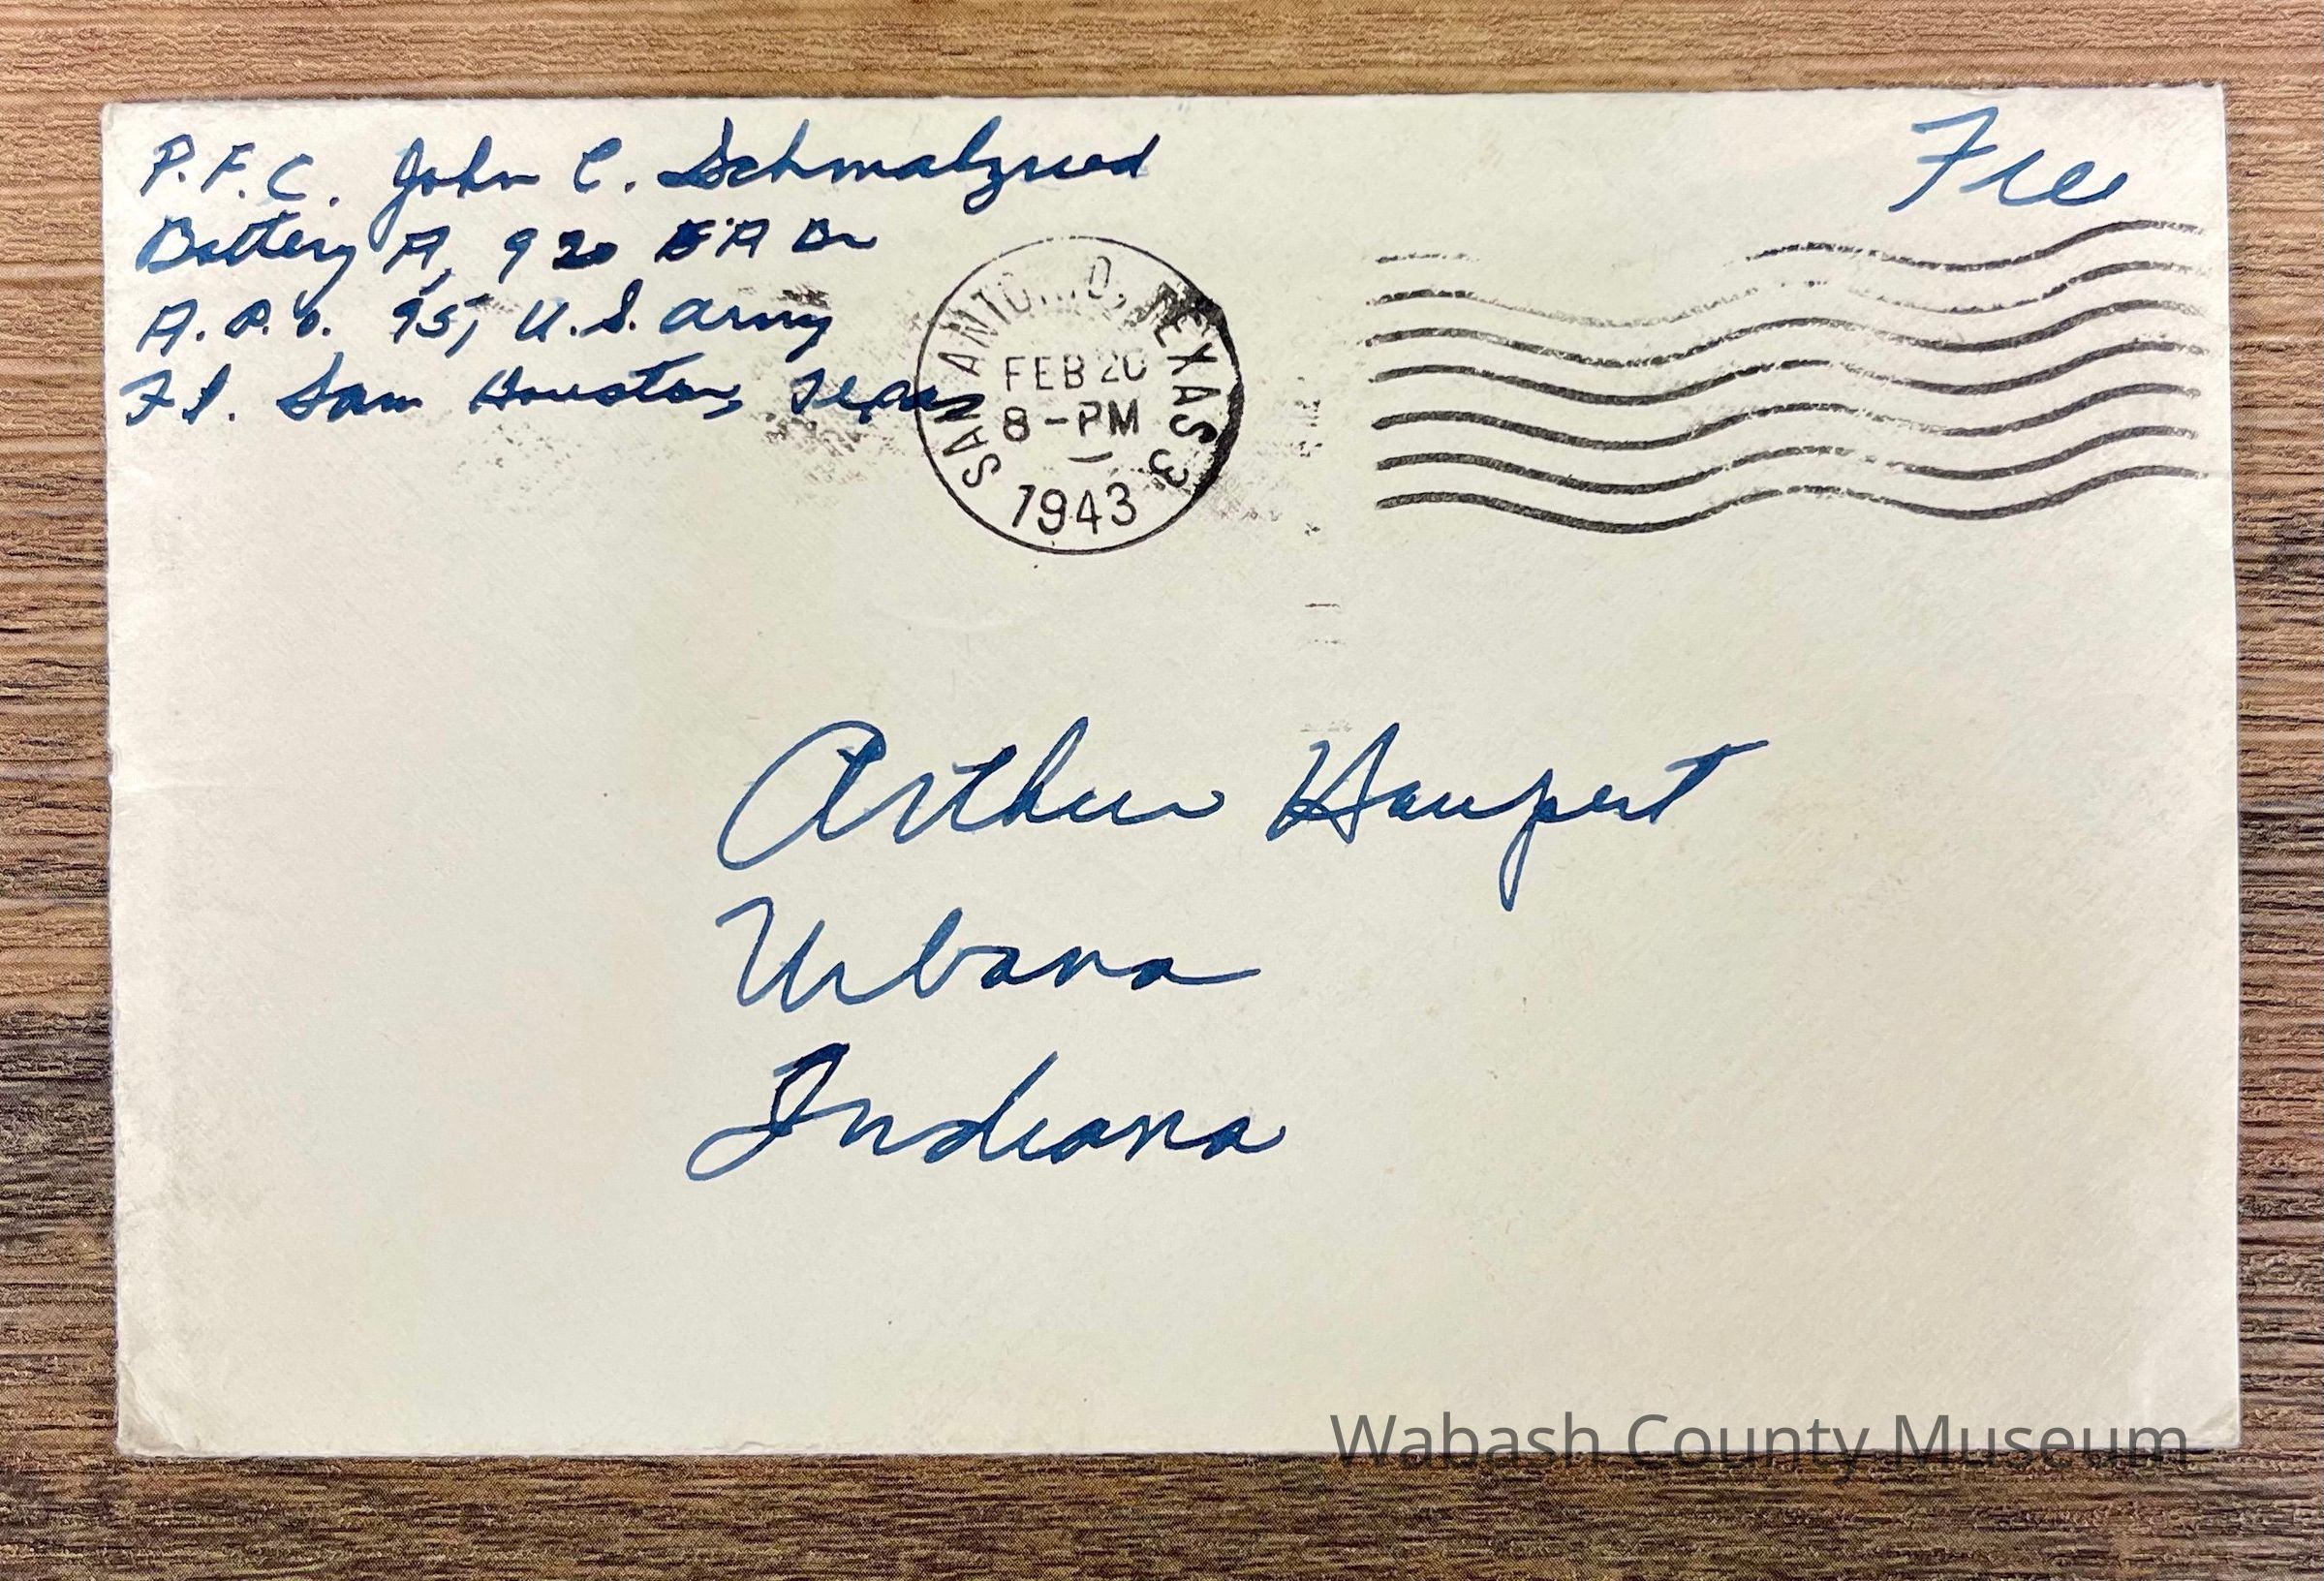 P.F.C. John C. Schmalzried
Battery A, 920 FA Bn
A.P.O. 95, U.S. Army
Ft. Sam Houston, Texas
Free
SAN ANTONIO, TEXAS 3
FEB 20
8-PM
1943
Arthur Haupert
Urbana
Indiana
Wabash County Museum